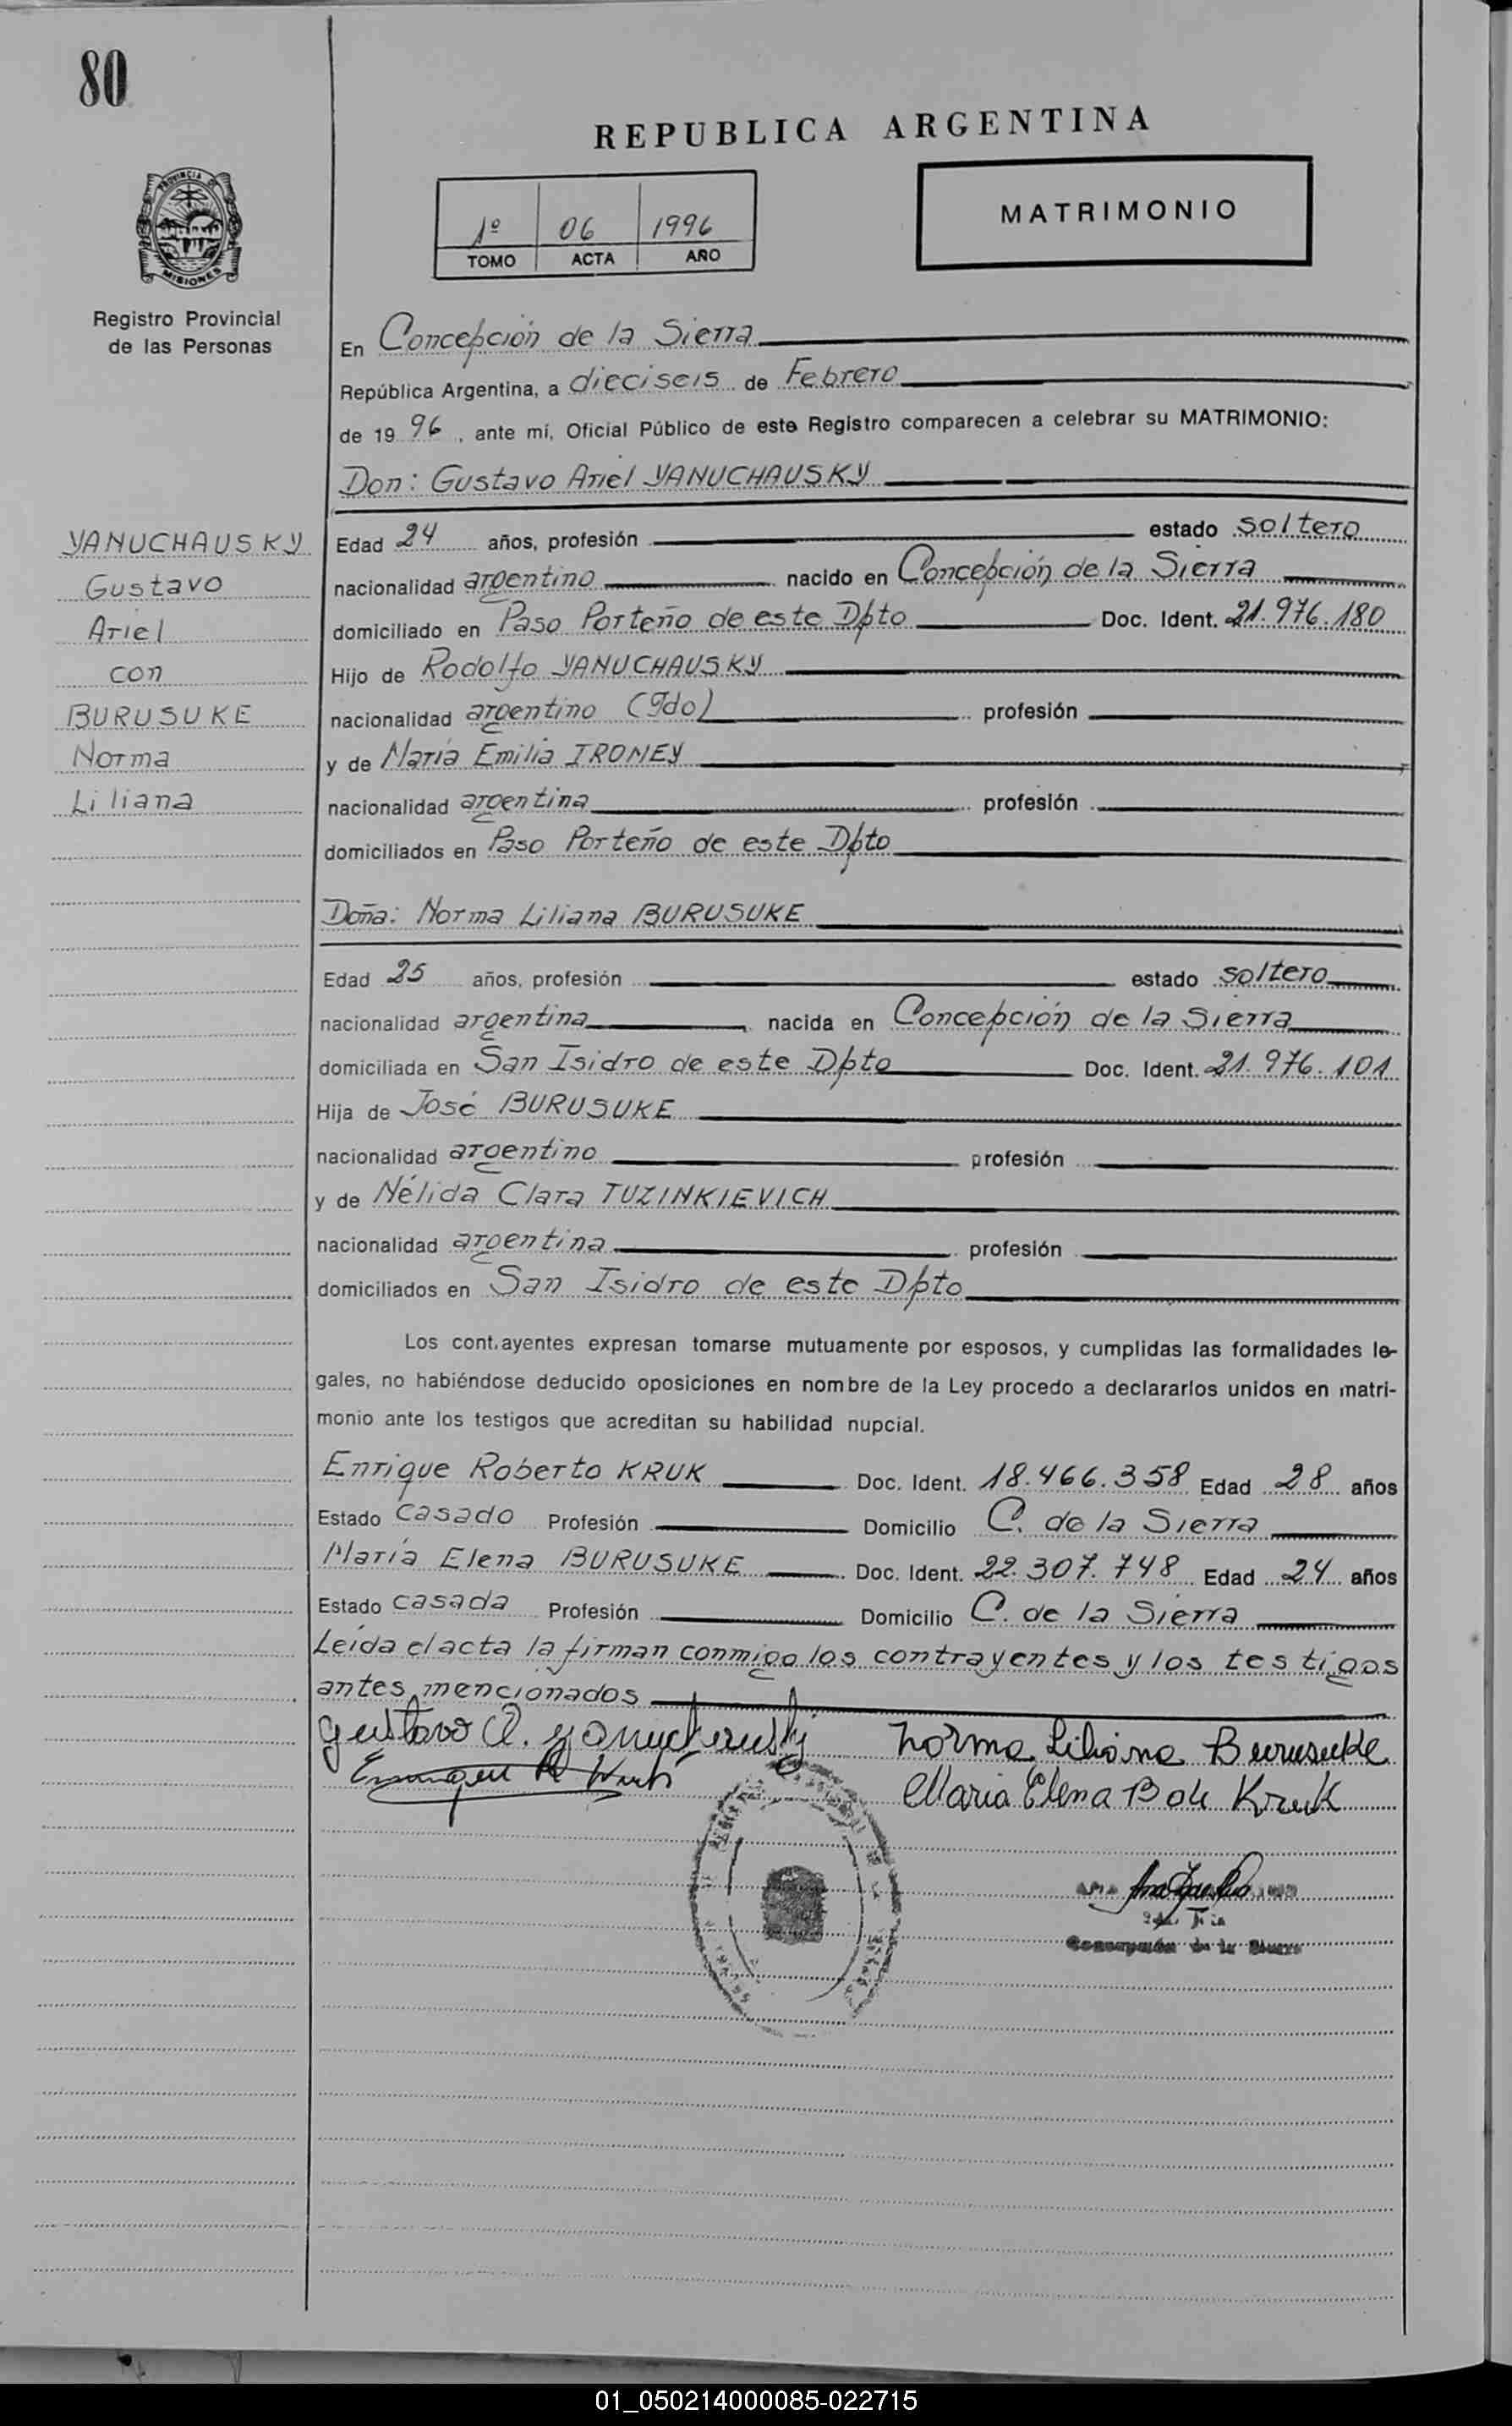 80
REPUBLICA ARGENTINA
MATRIMONIO
1º 06 1996
TOMO ACTA AÑO
PROVINCIA DE
MISIONES
Registro Provincial
de las Personas
En Concepción de la Sierra
República Argentina, a dieciseis de Febrero
de 19 96, ante mí, Oficial Público de este Registro comparecen a celebrar su MATRIMONIO:
Don: Gustavo Ariel YANUCHAUSKY
YANUCHAUSKY
Gustavo
Ariel
con
BURUSUKE
Norma
Liliana
Edad 24 años, profesión estado soltero
nacionalidad argentino nacido en Concepción de la Sierra
domiciliado en Paso Porteño de este Dpto Doc. Ident. 21.976.180
Hijo de Rodolfo YANUCHAUSKY
nacionalidad argentino (gdo) profesión
y de María Emilia IRONEY
nacionalidad argentina profesión
domiciliados en Paso Porteño de este Dpto
Doña: Norma Liliana BURUSUKE
Edad 25 años, profesión estado soltero
nacionalidad argentina nacida en Concepción de la Sierra
domiciliada en San Isidro de este Dpto Doc. Ident. 21.976.101
Hija de José BURUSUKE
nacionalidad argentino profesión
y de Nélida Clara TUZINKIEVICH
nacionalidad argentina profesión
domiciliados en San Isidro de este Dpto
Los cont.ayentes expresan tomarse mutuamente por esposos, y cumplidas las formalidades le-
gales, no habiéndose deducido oposiciones en nombre de la Ley procedo a declararlos unidos en matri-
monio ante los testigos que acreditan su habilidad nupcial.
Enrique Roberto KRUK Doc. Ident. 18.466.358 Edad 28 años
Estado casado Profesión Domicilio C. de la Sierra
María Elena BURUSUKE Doc. Ident. 22.307.748 Edad 24 años
Estado casada Profesión Domicilio C. de la Sierra
Leída el acta la firman conmigo los contrayentes y los testigos
antes mencionados
Gustavo A. Yanuchausky Norma Liliana Burusuke
Enrique R Kruk Maria Elena B de Kruk
Concepción de la Sierra
01_050214000085-022715